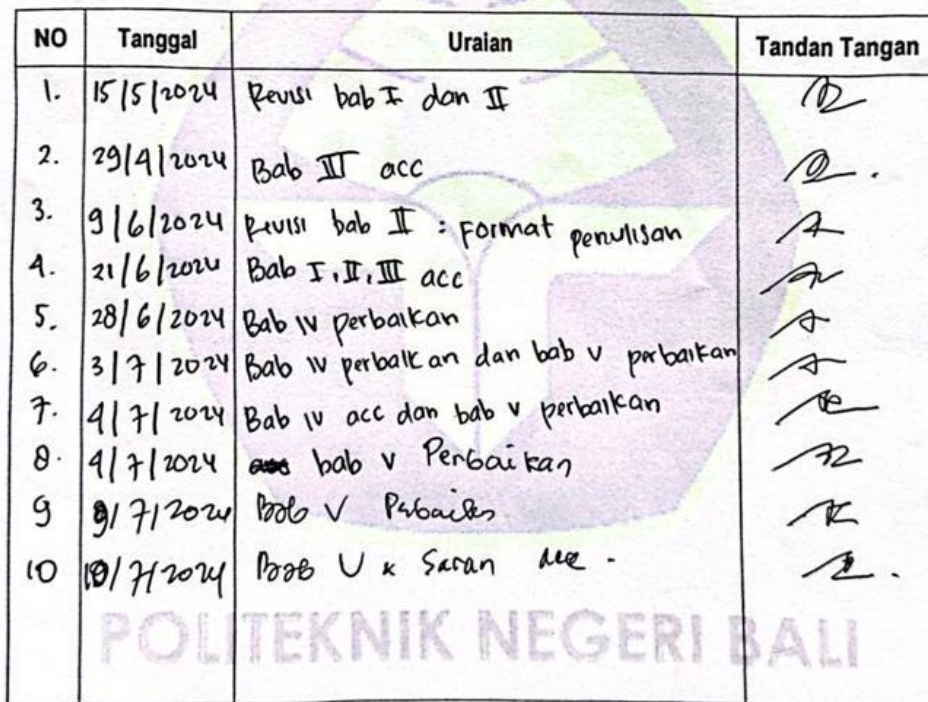 NO Tanggal Uraian Tandan Tangan
1. 15/5/2024 Revisi bab I dan II
2. 29/4/2024 Bab III acc
3. 9/6/2024 Revisi bab II : Format penulisan
4. 21/6/2024 Bab I, II, III acc
5. 28/6/2024 Bab IV perbaikan
6. 3/7/2024 Bab IV perbaikan dan bab V perbaikan
7. 4/7/2024 Bab IV acc dan bab V perbaikan
8. 4/7/2024 bab V Perbaikan
9 9/7/2024 Bab V
10 10/7/2024 Bab V & Saran acc.
POLITEKNIK NEGERI BALI